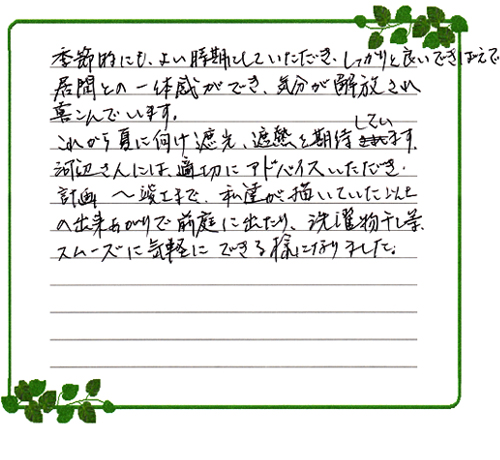 季節的にも、よい時期にしていただき、しっかりと良いできばえで
居間との一体感ができ、気分が解放され
喜こんでいます。
これから夏に向け遮光、遮熱を期待しています。
河辺さんには、適切にアドバイスいただき、
計画〜竣工まで、私達が描いていた
の出来あがりで前庭に出たり、洗濯物干し等、
スムーズに気軽にできる様になりました。